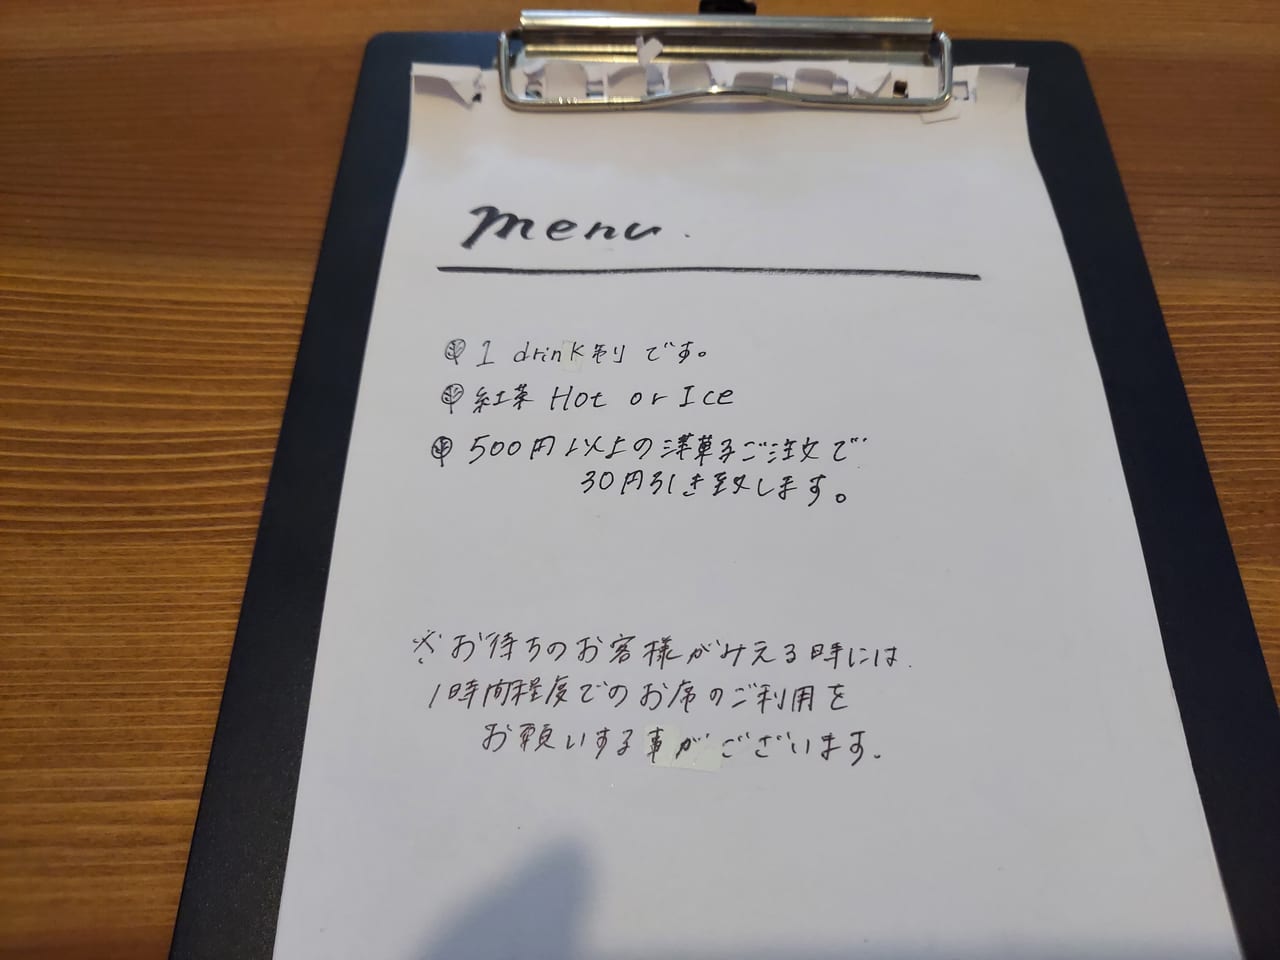 menu.
1 drink制です。
紅茶 Hot or Ice
500円以上の洋菓子ご注文で
30円引き致します。
※お待ちのお客様がみえる時には、
1時間程度でのお席のご利用を
お願いする事がございます。